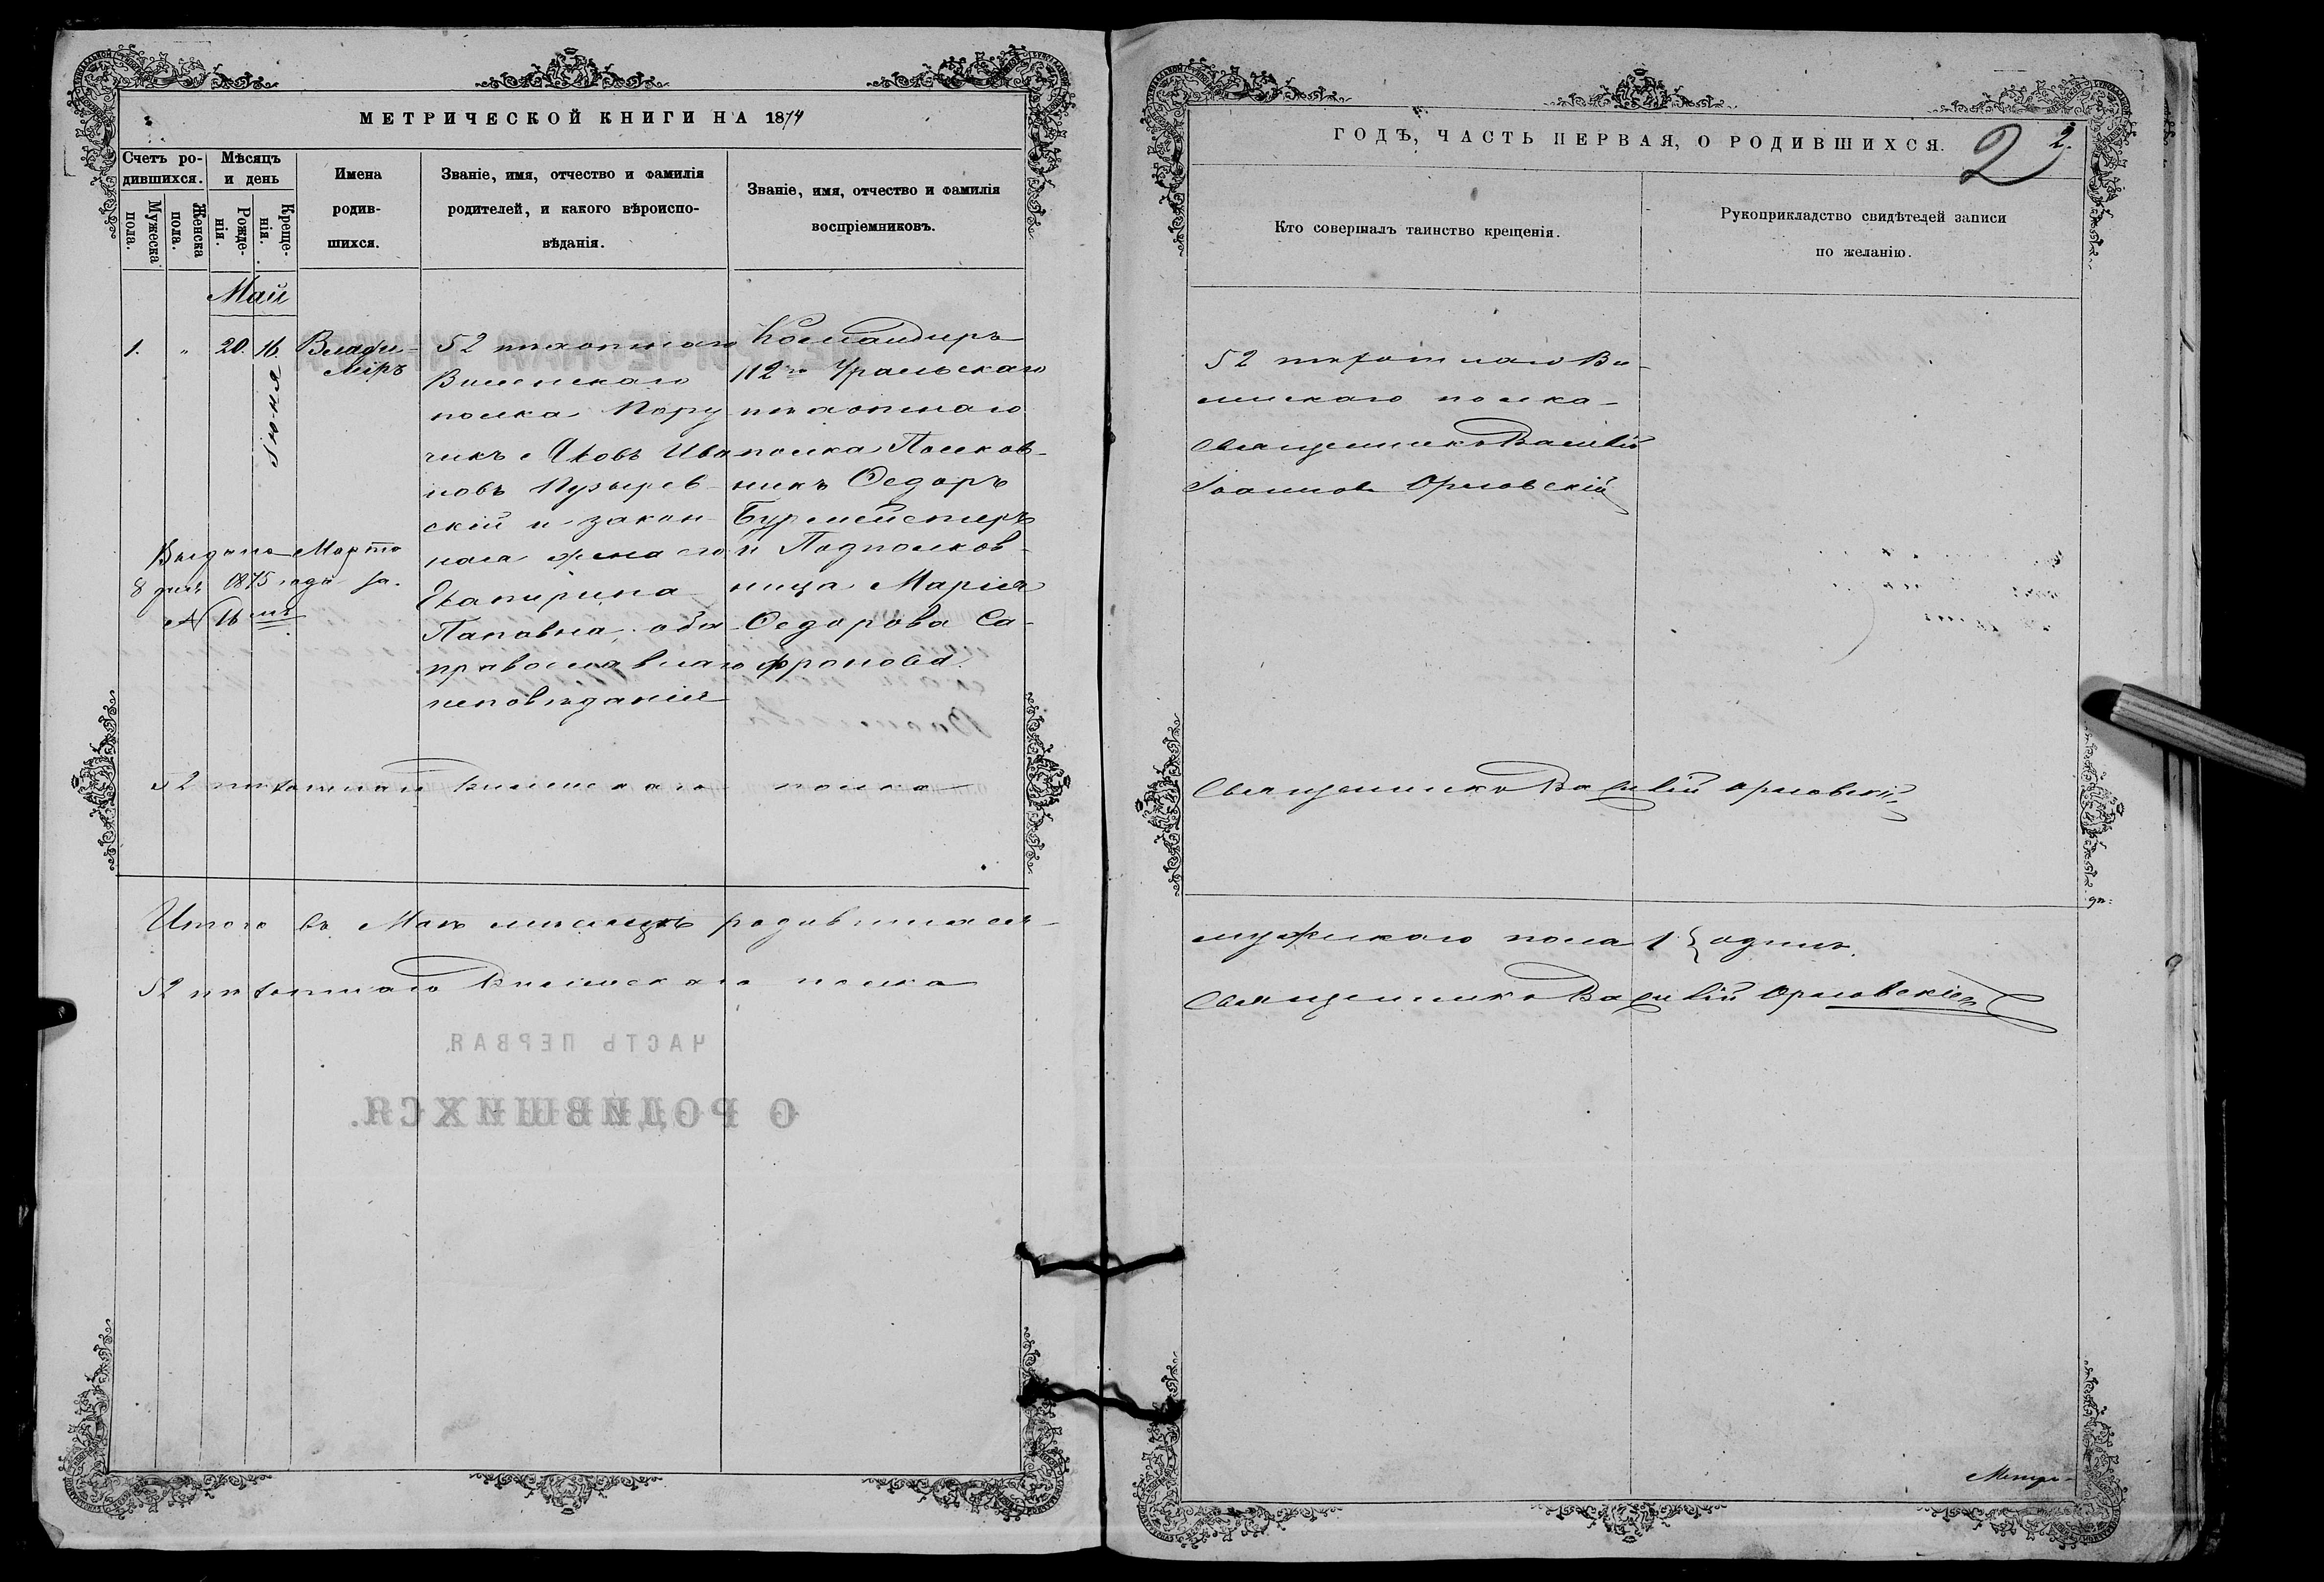 МЕТРИЧЕСКОЙ КНИГИ НА 1874
Счетъ ро-
дившихся.
Мѣсяцъ
и день
Мужеска
пола.
Женска
пола.
Рожде-
нія.
Креще-
нія.
Имена
родив-
шихся.
Званіе, имя, отчество и фамилія
родителей, и какого вѣроиспо-
вѣданія.
Званіе, имя, отчество и фамилія
воспріемниковъ.
Май
1. " 20. 16.
Іюня
Влади-
міръ
52 пѣхотнаго
Виленскаго
полка Пору
чикъ Яковъ Ива
новъ Пузырев-
скій и закон-
ная жена его
Екатерина
оба
православнаго
исповѣданія
Командиръ
112го Уральскаго
пѣхотнаго
полка Полков-
никъ Ѳедоръ
Бурмейстеръ
и Подполков-
ница Марія
Ѳедорова Са-
фронова.
Выдано Марта
8 дня 1875 года за
№ 16мъ
52 пѣхотнаго Виленскаго полка
Итого въ Маѣ мѣсяцѣ родившихся
52 пѣхотнаго Виленскаго полка
ЧАСТЬ ПЕРВАЯ.
О РОДИВШИХСЯ.
ГОДѢ, ЧАСТЬ ПЕРВАЯ, О РОДИВШИХСЯ.
2
2.
Кто совершалъ таинство крещенія.
Рукоприкладство свидѣтелей записи
по желанію.
52 пѣхотнаго Ви-
ленскаго полка
Священникъ Василій
Іоанновъ Орловскій
Священникъ Василій Орловскій
мужескаго пола 1 } одинъ.
Священникъ Василій Орловскій
Метри-